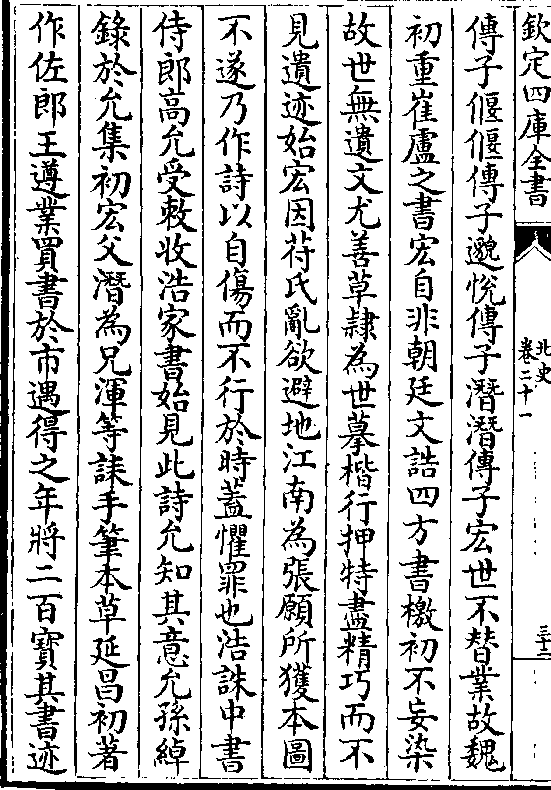 欽定四庫全書
北史
卷二十一
三十三
傳子偃偃傳子邈悅傳子潛潛傳子宏世不替業故魏
初重崔盧之書宏自非朝廷文誥四方書檄初不妄染
故世無遺文尤善草𨽻為世摹楷行押特盡精巧而不
見遺迹始宏因苻氏亂欲避地江南為張願所獲本圖
不遂乃作詩以自傷而不行於時葢懼罪也浩誅中書
侍郎高允受敕收浩家書始見此詩允知其意允孫綽
錄於允集初宏父潛為兄渾等誄手筆本草延昌初著
作佐郎王遵業買書於市遇得之年將二百寳其書迹